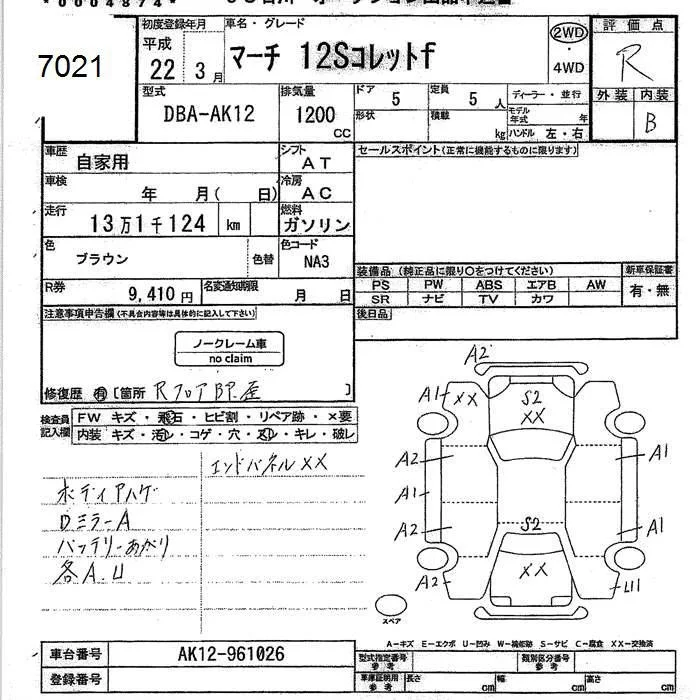 *0004874*
7021
初度登録年月 車名・グレード 評価点
平成 22年 3月 マーチ 12Sコレットf 2WD・4WD R
型式 排気量 ドア 5 定員 5人 ディーラー・並行 外装 内装
DBA-AK12 1200 CC 形状 積載 kg モデル年式 年 ハンドル 左・右 B
車歴 自家用 シフト AT セールスポイント(正常に機能するものに限ります)
車検 年 月( 日) 冷房 AC
走行 13万1千124 km 燃料 ガソリン
色 ブラウン 色替 色コード NA3
装備品 (純正品に限り○をつけてください) 新車保証書
PS PW ABS エアB AW 有・無
SR ナビ TV カワ
R券 9,410円 名変通知期限 月 日
注意事項申告欄(不具合内容等は具体的に記入して下さい) 後日品
ノークレーム車
no claim
修復歴 有 [箇所 Rフロア
検査員記入欄 FW キズ・飛石・ヒビ割・リペア跡・×要
内装 キズ・汚レ・コゲ・穴・スレ・キレ・破レ
エンドパネルXX
ボディアハゲ
ロミラーA
バッテリーあがり
各A.U
A2
A1 XX S2 XX
A2 A1
A1
A2 S2 A1
A2 XX U1
スペア
A-キズ E-エクボ U-凹み W-補修跡 S-サビ C-腐食 XX-交換済
車台番号 AK12-961026 型式指定番号 参考 類別区分番号 参考
登録番号 車庫証明用 参考 長さ cm 幅 cm 高さ cm